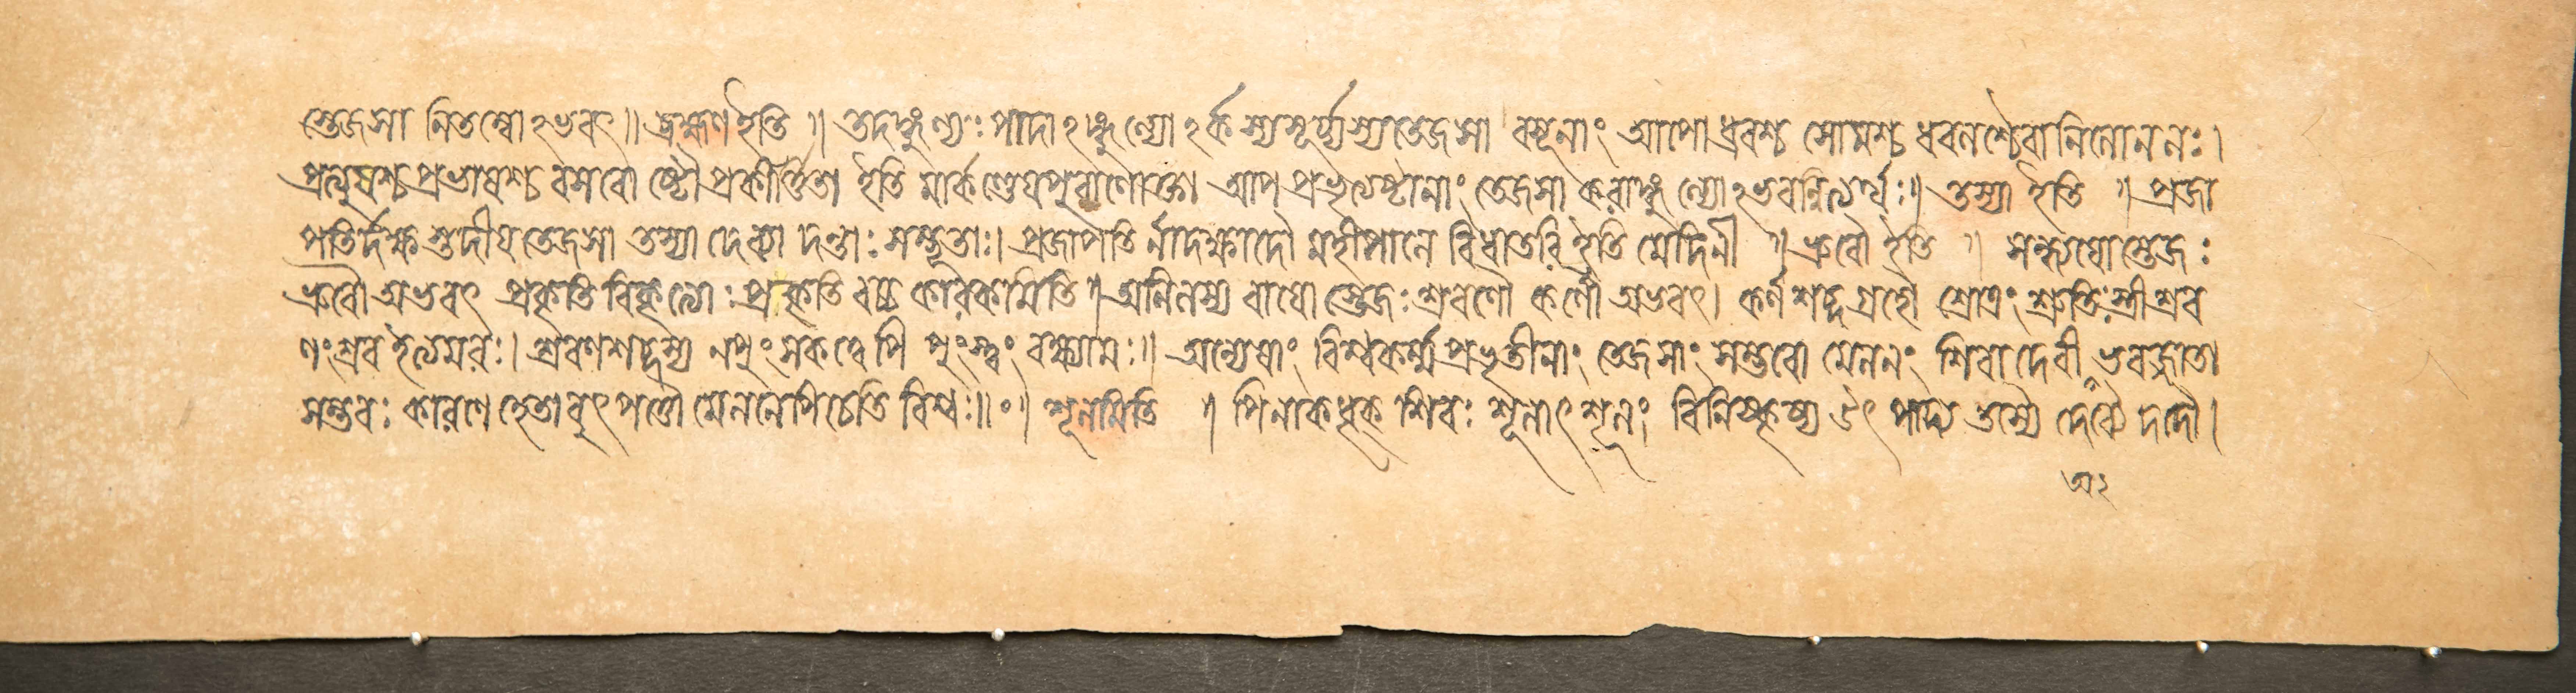 স্তেজসা নিতম্বোঽভবৎ॥ ব্রহ্মণইতি ॥ তদঙ্গুল্যঃ পাদাঽঙ্গুল্যোঽর্কস্যসূর্য্যস্যতেজসা বসূনাং আপোধ্রুবশ্চ সোমশ্চ ধবলশ্চৈবানিলোনলঃ।
প্রত্যুষশ্চপ্রভাষশ্চ বসবোষ্টৌপ্রকীর্ত্তিতা ইতি মার্কণ্ডেয়পুরাণোক্তা আপ প্রভৃত্যষ্টানাং তেজসা করাঙ্গুল্যোঽভবন্নিত্যর্থঃ॥ তস্যা ইতি ॥ প্রজা
পতির্দক্ষ স্তদীয়তেজসা তস্যা দেব্যা দন্তাঃ সম্ভূতাঃ। প্রজাপতি র্নাদক্ষাদৌ মহীপালে বিধাতরি ইতি মেদিনী ॥ ভ্রুবৌ ইতি ॥ সন্ধ্যযোস্তেজঃ
ভ্রুবৌ অভবৎ প্রকৃতি বিকৃত্যোঃ প্রকৃতি বচ্চ কারকামিতি॥ অনিলস্য বাযো স্তেজঃ শ্রবণৌ কর্ণৌ অভবৎ। কর্ণ শব্দগ্রহৌ শ্রোত্রং শ্রুতিঃ স্ত্রীশ্রব
ণংশ্রব ইত্যমরঃ। শ্রবণশব্দস্য নপুংসকত্বেপি পুংস্ত্বং বক্ষ্যামঃ॥ অন্যেষাং বিশ্বকর্ম্মপ্রভৃতীনাং তেজসাং সম্ভবো মেলনং শিবা দেবী ভবজ্জাতা
সম্ভবঃ কারণে হেতাবুৎপত্তৌ মেলনেপিচেতি বিশ্বঃ॥ শূলমিতি ॥ পিনাকধৃক্ শিবঃ শূলাৎ শূলং বিনিষ্কৃষ্য উৎপাদ্য তস্যৈ দেব্যৈ দদৌ।
অ২